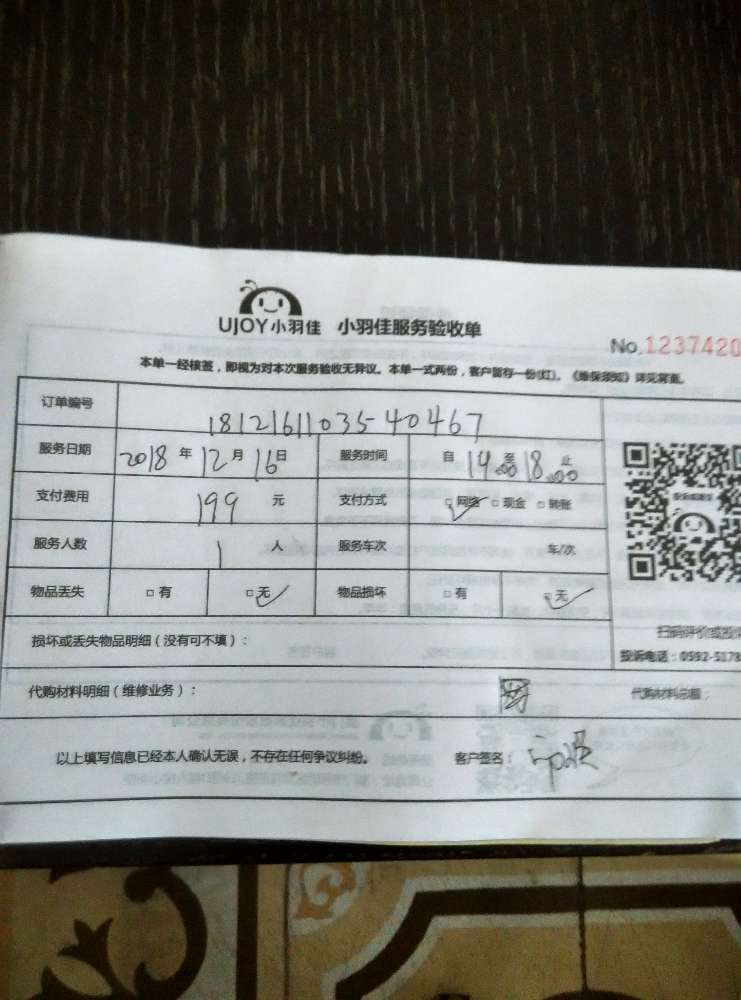 UJOY小羽佳 小羽佳服务验收单
No.1237420
本单一经核签，即视为对本次服务验收无异议。本单一式两份，客户留存一份(红)。《维保须知》详见背面。
订单编号 1812161103540467
服务日期 2018 年 12 月 16 日 服务时间 自 14:00 至 18:00 止
支付费用 199 元 支付方式 ☑网络 □现金 □转账
服务人数 1 人 服务车次 车/次
物品丢失 □有 ☑无 物品损坏 □有 ☑无
扫码评价或投
损坏或丢失物品明细（没有可不填）：
投诉电话：0592-5178
代购材料明细（维修业务）： 代购材料总额：
以上填写信息已经本人确认无误，不存在任何争议纠纷。 客户签名：